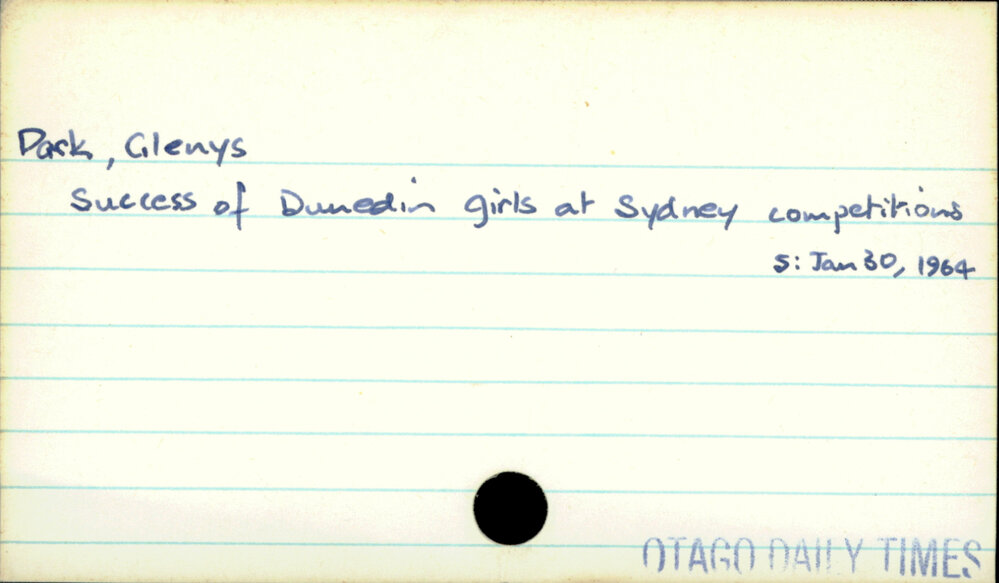 Park, Glenys
Success of Dunedin girls at Sydney competitions
5: Jan 30, 1964
OTAGO DAILY TIMES